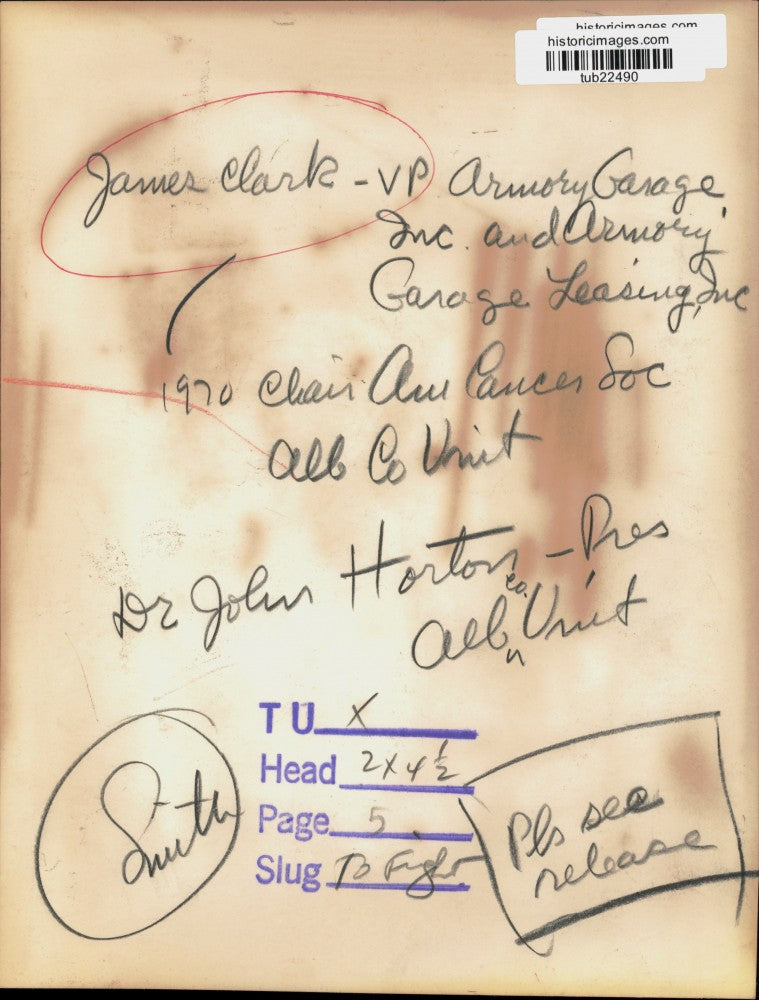 historicimages.com
historicimages.com
tub22490
James Clark - VP Armory Garage
Inc. and Armory
Garage Leasing, Inc
1970 Chair Am Cancer Soc
Alb Co Unit
Dr John Horton - Pres
Alb Co. Unit
TU X
Head 2 x 4 1/2
Page 5
Slug To Fight
Smith
Pls see
release